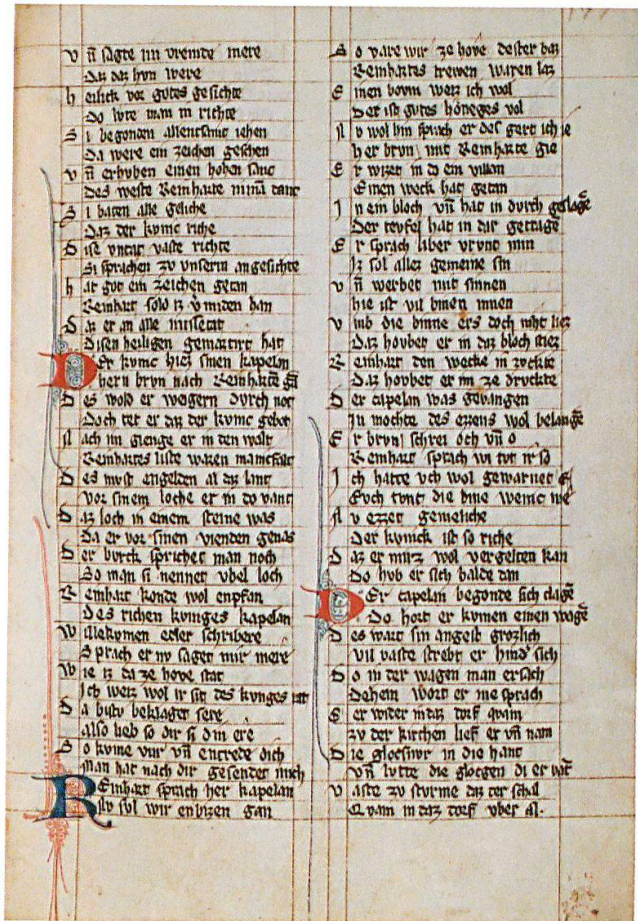 v n̄ sagte im vremde mere
Daz daz hvn were
h eilick vor gotes gesichte
Do lvte man in richte
S i begonden allentsamt iehen
Da were ein zeichen geschen
v n̄ erhvben einen hohen sanc
Des weste Reinharte
S i baten alle geliche
Daz der kvnic riche
D ise vntat vaste richte
Si sprachen zv vnserm angesichte
h at got ein zeichen getan
Reinhart sold iz v̄miden han
D az er an alle missetat
Disen heiligen gemartirt hat
D Er kvnic hiez sinen kapelan
hern brvn nach Reinharte gan
D es wold er weigern dvrch not
Doch tet er daz der kvnic gebot
N ach im gienge er in den walt
Reinhartes liste waren manicfalt
D es mvst engelden al daz lant
vor sinem loche er in do vant
D az loch in einem steine was
Da er vor sinen vienden genas
D er bvrck sprichet man noch
So man si nennet vbel loch
R einhart konde wol enpfan
Des richen kvniges kapelan
W illekvmen edler schribere
Sprach er nv saget mir mere
W ie iz da ze hove stat
Ich weiz wol ir sit des kvnges rat
D a bistv beklaget sere
also lieb so dir si din ere
S o kvme vvr vn̄ entrede dich
Man hat nach dir gesendet mich
R Einhart sprach her kapelan
Nv svl wir enbizen gan
S o vare wir ze hove dester baz
Reinhartes trewen waren laz
E inen bovm weiz ich wol
Der ist gvtes honeges vol
N v wol hin sprach er des gert ich ie
her brvn mit Reinharte gie
E r wizet in do ein villan
Einen weck hat getan
I n ein bloch vn̄ hat in dvrch geslagē
Der tevfel hat in dar getrage
E r sprach liber vrvnt min
Iz sol allez gemeine sin
v n̄ werbet mit sinnen
hie ist vil binen innen
v mb die binne ers doch niht liez
Daz hovbet er in daz bloch stiez
R einhart den wecke in zvckte
Daz hovbet er im ze drvckte
D er capelan was gevangen
In mochte des ezzens wol belangē
E r brvn schrei och vn̄ o
Reinhart sprach wi tvt ir so
I ch hatte vch wol gewarnet
Evch tvnt die bine weinic we
N v ezzet gemeliche
Der kvnick ist so riche
D az er mirz wol vergelten kan
Do hvb er sich balde dan
D Er capelan begonde sich clagē
Do hort er kvmen einen wagē
D es wart sin angest grozlich
vil vaste strebt er hind' sich
D o in der wagen man ersach
Dehein wort er nie sprach
E r wider in daz dorf qvam
zv der kirchen lief er vn̄ nam
D ie glocsnvr in die hant
vn̄ lvtte die glocgen di er vant
v aste zv stvrme daz der schal
Qvam in daz dorf vber al.